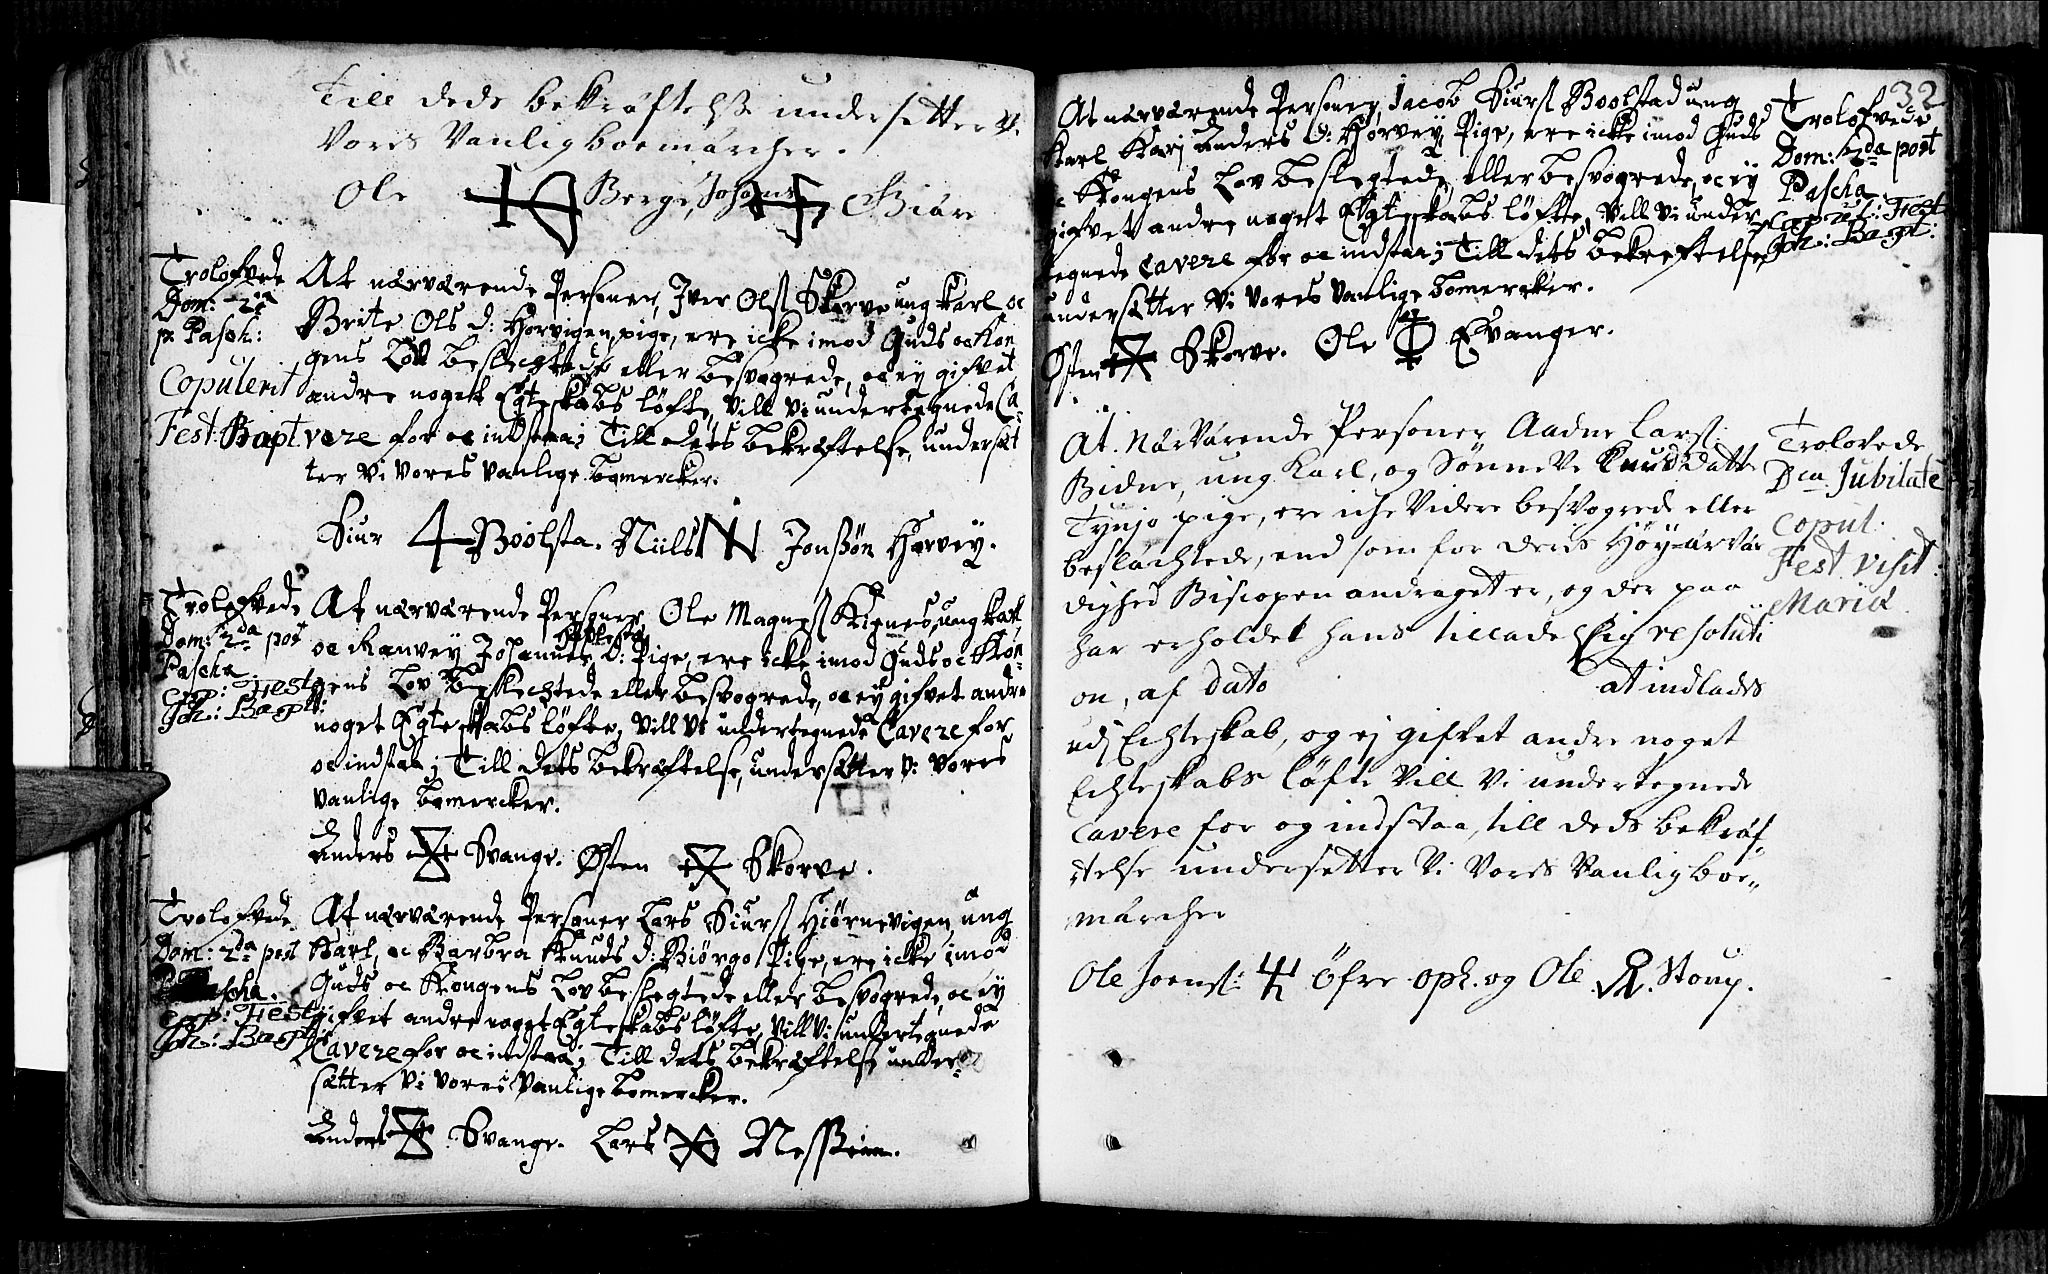 Till deds bekräftelse undersetter Vi
Vores Vanlig boemärcher.
Ole Berge, Johans Giære
Trolofvede
Dom: 2da
p. Pasch:
Copulerit
Fest: Bapt.
At nærværende Personer, Iver Ols: Skorve ung Karl oc
Brite Ols d: Horvigen, pige, ere icke imod Guds oc Kon
gens Lov beslechtede eller besvogrede, oc ey gifvet
andre noget Egteskabs løfte, Vill Vi undertegnede Ca-
vere for oc indstaa; Till dets bekræftelse, undersæt
ter Vi vores vanlige bomercker.
Siur Boolsta. Niils Jonßøn Harvey.
Trolofvede
Dom: 2da post
Pascha
Cop: Fest:
Joh: Bapt:
At nærværende Personer, Ole Magness: Kignes, ung Karl
oc Ranvey Johannes D: Pige, ere icke imod Guds oc Kon-
gens Lov beslechtede eller besvogrede, oc ey gifvet andre
noget Egteskabs løfte, Vill Vi undertegnede Cavere for
oc indstaa; Till dets bekræftelse, undersætter Vi vores
vanlige bomercker.
Anders Evange. Østen Skorve.
Trolofvede
Dom: 2da post
Pascha.
Cop: Fest:
Joh: Bapt:
At nærværende Personer Lars Siurs: Hiørnevigen, ung
Karl, oc Barbra Knuds d: Biørgo Pige, ere icke imod
Guds oc Kongens Lov beslegtede eller besvogrede, oc ey
gifvet andre noget Egteskabs løfte, Vill Vi undertegnede
Cavere for oc indstaa; Till dets bekræftelse under-
sætter Vi vores vanlige bomercker.
Anders Evange. Lars Nessheim.
32
At nærværende Personer, Jacob Siurs: Boolstad ung
Karl Kari Anders D: Hørvey Pige, ere icke imod Guds
oc Kongens Lov beslegtede, eller besvogrede, oc ey
gifvet andre noget Egteskabs løfte, Vill Vi under
tegnede Cavere for oc indstaa; Till dets bekreftelse,
undersætter Vi vores vanlige bomercker.
Østen Skorve. Ole Evanger.
Trolofvede
Dom: 2da post
Pascha
Copul: Fest
Joh: Bapt:
At Närvärende Personer Aadne Lars:
Bidne, ung Karl, og Sønneve Knudsdatte
Tynjo pige, ere iche Videre besvogrede eller
beslächtede, end som for deris Høy-ärvär
dighed Biscopen andraget er, og der paa
har erholdet hans tilladelig resoluti
on, af dato at indlades
udj Echteskab, og ej gifvet andre noget
Echteskabs løfte Vill Vi undertegnede
Cavere for og indstaa, till deds bekräf-
telse undersetter Vi Vores Vanlig boe-
märcher
Ole Joens: Øfre oph. og Ole Stoup.
Trolofvede
Dca Jubilate
Copul:
Fest. Visit:
Mariæ.